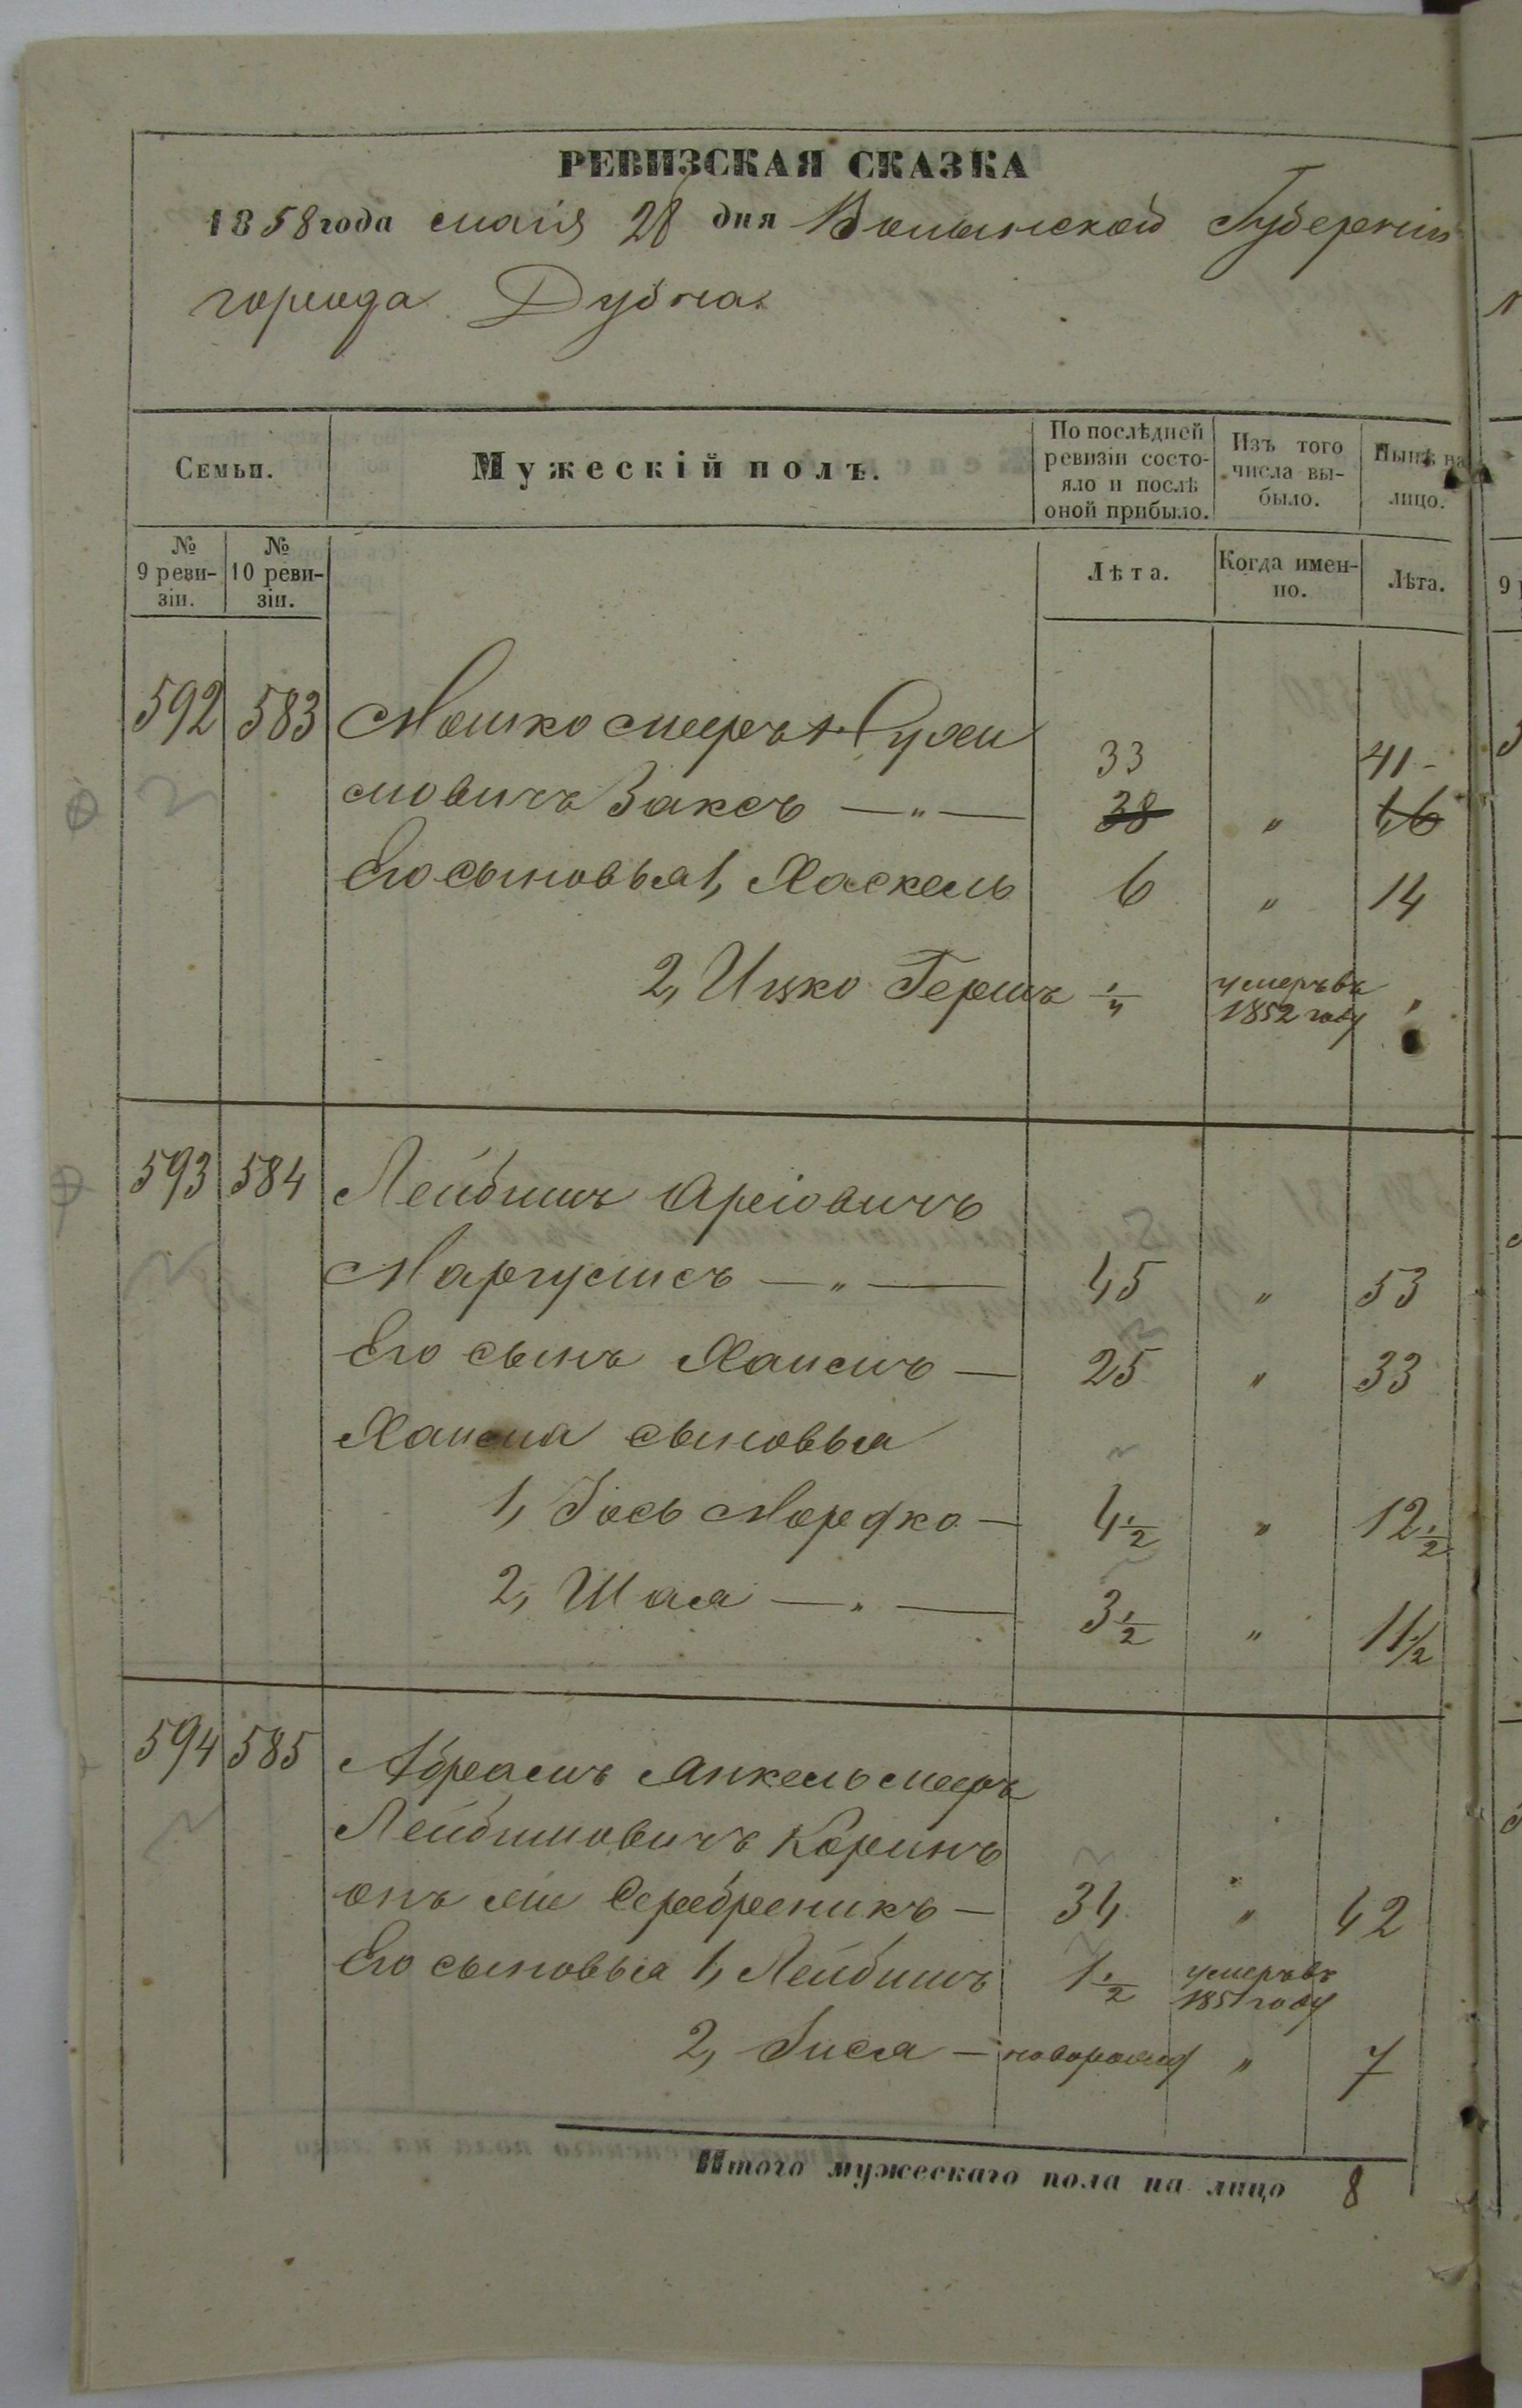 РЕВИЗСКАЯ СКАЗКА
1858 года маія 28 дня Волынской Губерніи
города Дубна
Семьи.
Мужескій полъ.
По послѣдней ревизіи состояло и послѣ оной прибыло.
Изъ того числа выбыло.
Нынѣ на лицо.
№ 9 ревизіи.
№ 10 ревизіи.
Лѣта.
Когда именно.
Лѣта.
592 583 Мошко Мееръ
мовичъ Заксъ — „ — 33 38 „ 41 - 46
Его сыновья 1, Хаскель 6 „ 14
2, Ицко Гершъ 1/4 умеръ въ 1852 году „
593 584 Лейбишъ Аріовичъ
Маргулисъ — „ — 45 „ 53
Его сынъ Хаимъ — 25 „ 33
Хаима сыновья
1, Іось Мордко — 4 1/2 „ 12 1/2
2, Шая — „ — 3 1/2 „ 11 1/2
594 585 Абрамъ Янкель Мееръ
Лейбишовичъ Коринъ
онъ же Серебреникъ — 34 „ 42
Его сыновья 1, Лейбишъ 1 1/2 умеръ въ 1851 году
2, Зися — новорожд „ 7
Итого мужескаго пола на лицо 8